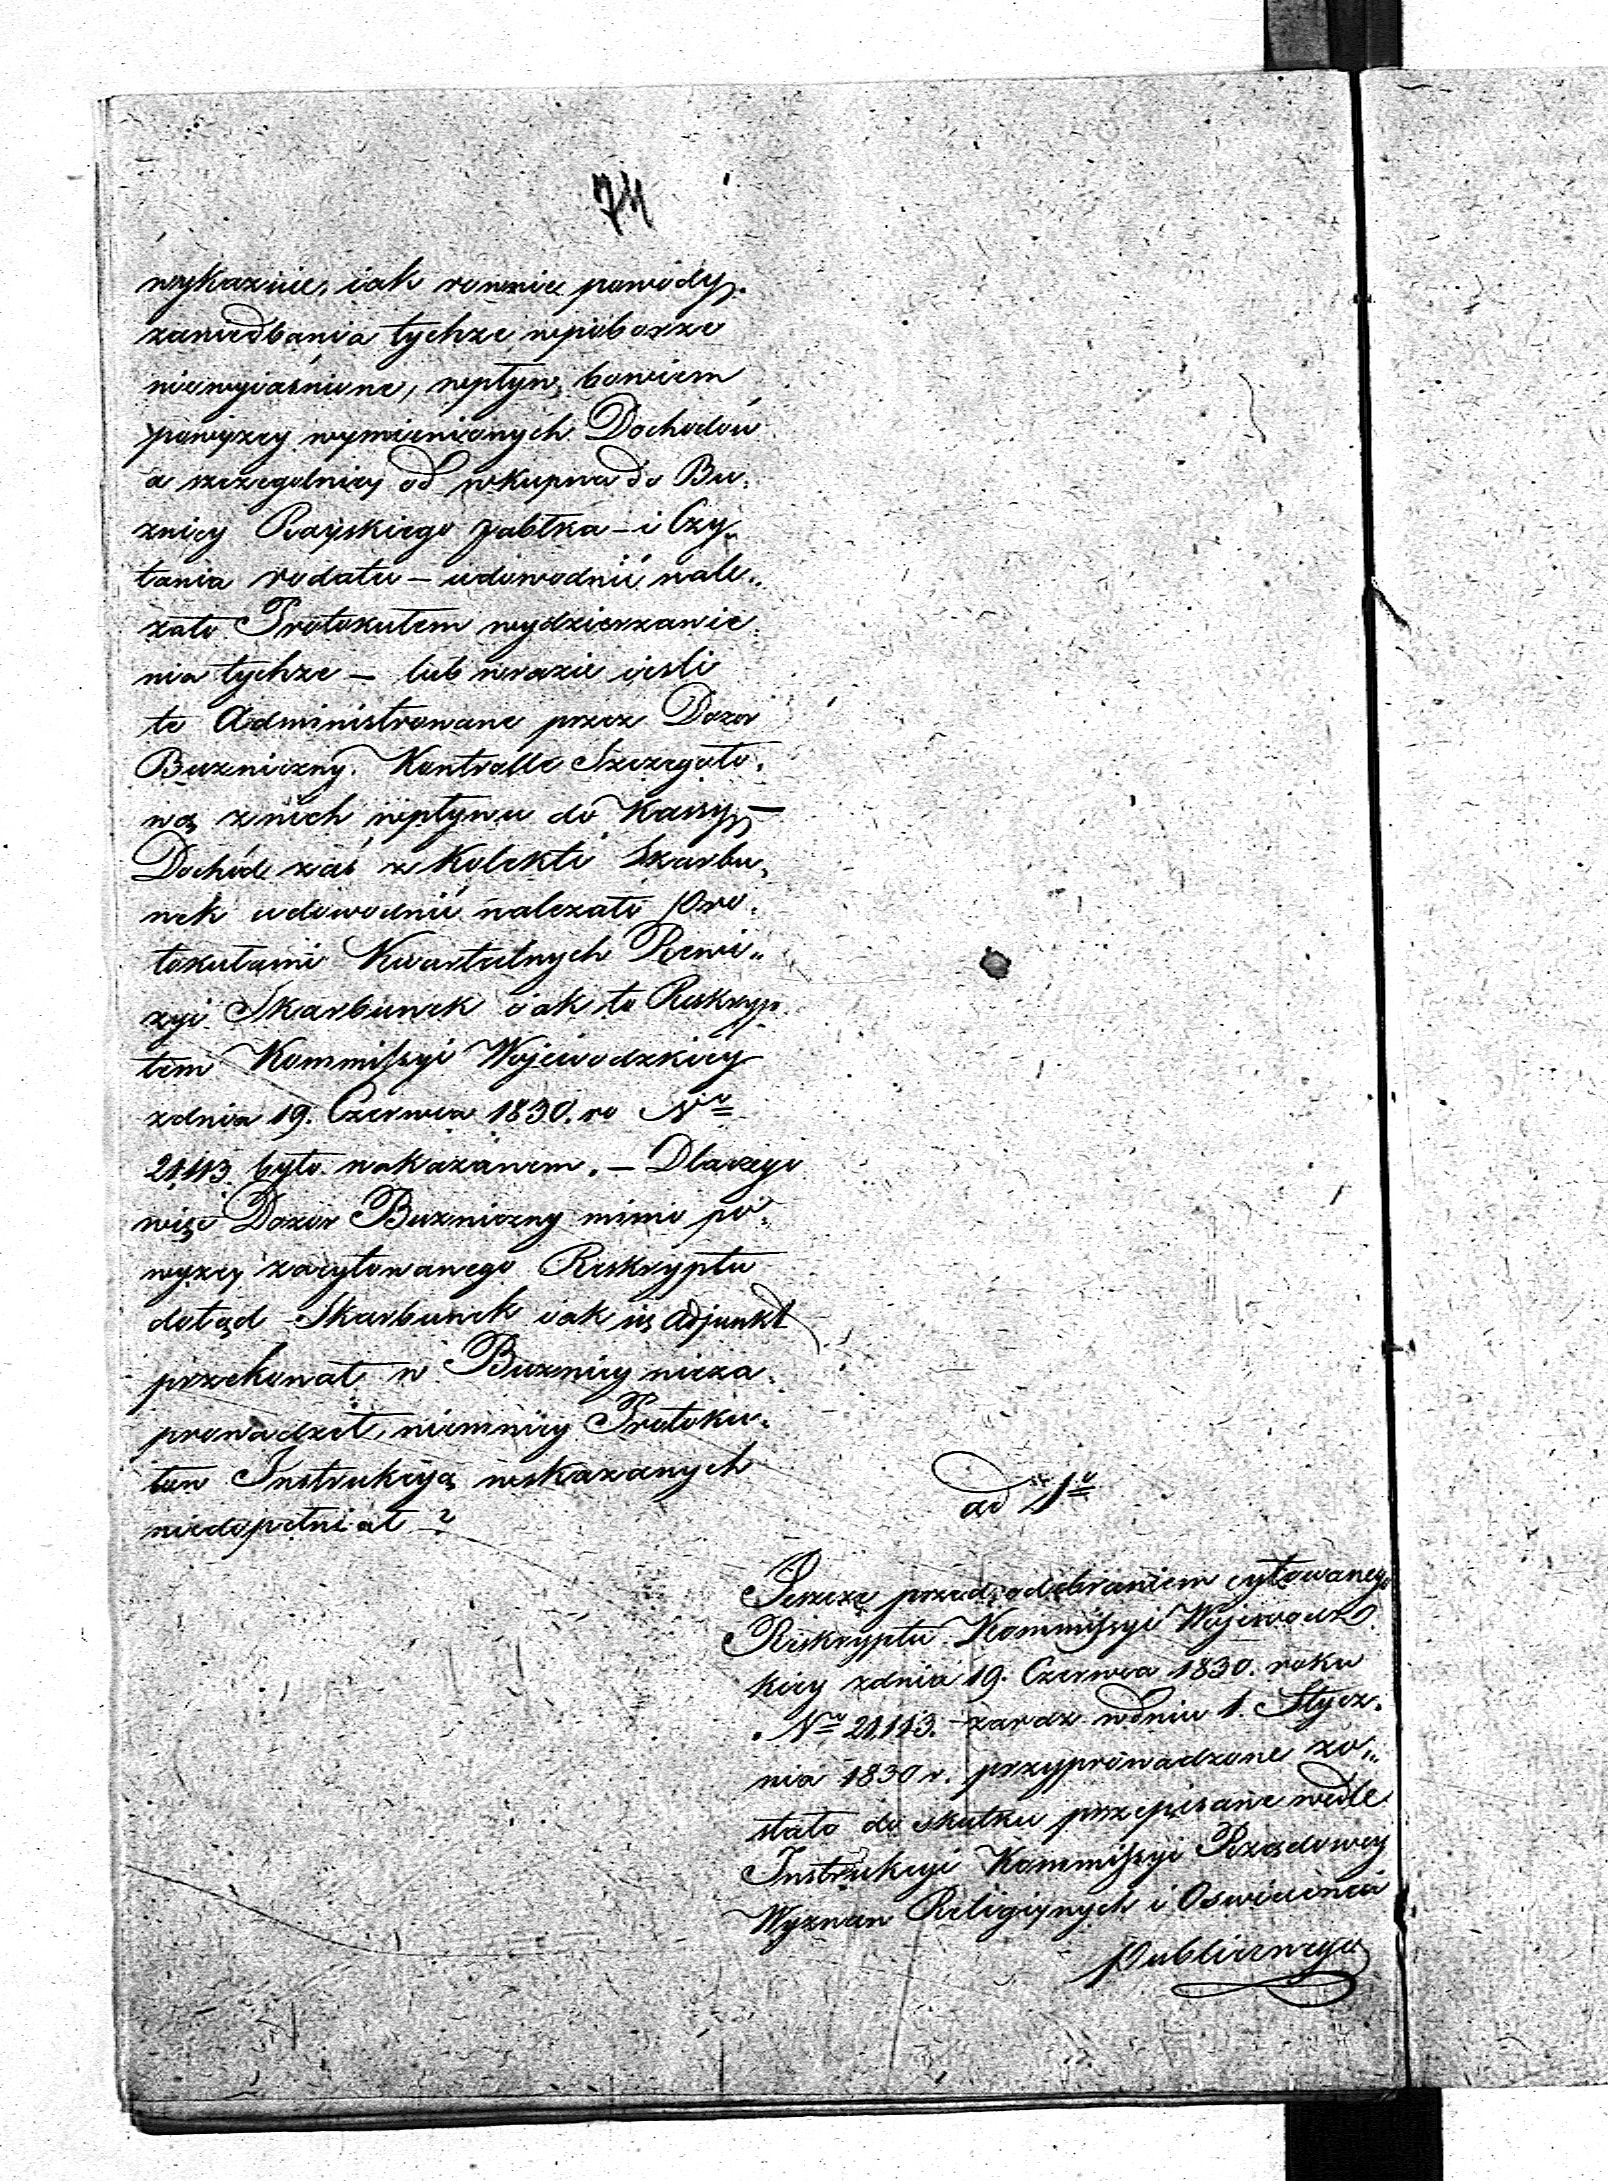 74
wykaznie, iak rownie powody
zaniedbania tychze wpoborze
niewyiaśnione, wpływ, bowiem
powyzey wymienionych Dochodów
a szczegolniey od wkupna do Bu„
znicy Rayskiego Jabłka – i Czy„
tania rodału – udowodnić nale„
zało Protokułem wydzierzawie
nia tychze – lub wrazie iesli
te Administrowane przez Dozor
Buzniczny. Kontrolle Szczegoło„
wą znich wpływu do Kassy –
Dochód zaś z Kolekti Skarbu„
nek udowodnić nalezało Pro„
tokułami Kwartalnych Rewi„
zyi Skarbunek iak to Reskryp
tem Kommissyi Wojewodzkiey
zdnia 19. Czerwca 1830. ro Nro
21,113 było nakazanem. – Dlaczego
więc Dozór Buzniczny mimo po„
wyzey zacytowanego Reskryptu
dotąd Skarbunek iak się Adjunkt
przekonał w Buznicy nieza„
prowadzał, niemniey Protoku„
łow Instrukcyą wskazanych
niedopełniał ?
ad 1o
Jeszcze przed odebraniem cytowanego
Reskryptu Kommissyi Wojewodz
kiey zdnia 19. Czerwca 1830. roku
Nro 21,113. zaraz wdniu 1. Stycz„
nia 1830 r. przyprowadzone zo„
stało do skutku przepisane wedle
Instrukcyi Kommissyi Rządowey
Wyznan Religiynych i Oswiecenia
Publicznego